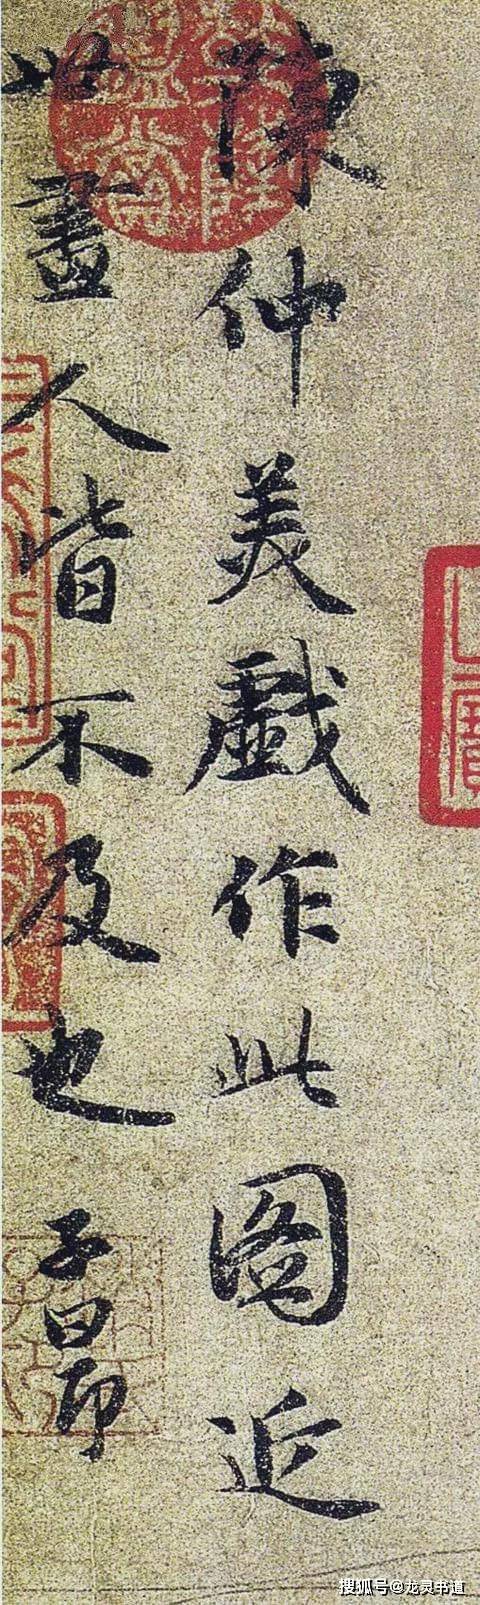 陳仲美戲作此圖近
世畫人皆不及也 子昂
搜狐号@龙灵书道